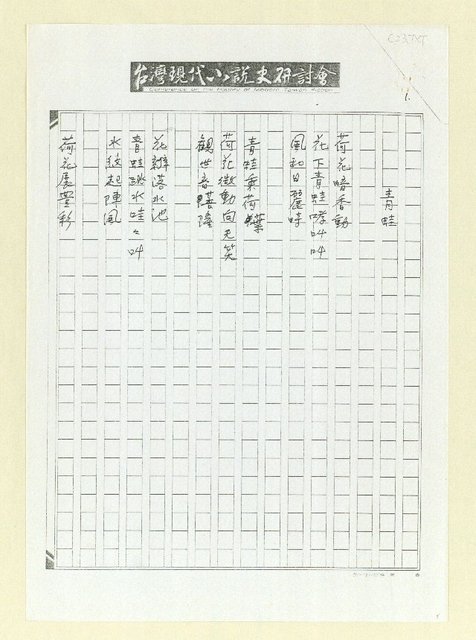 台灣現代小說史研討會
Conference on the History of Modern Taiwan Fiction
1.
青蛙
荷花暗香動
花下青蛙哮叫叫
風和日麗時
青蛙乘荷葉
荷花微動向天笑
觀世音蓮隆
花瓣落水池
青蛙跳水哇々叫
水紋起陣風
荷花展豐彩